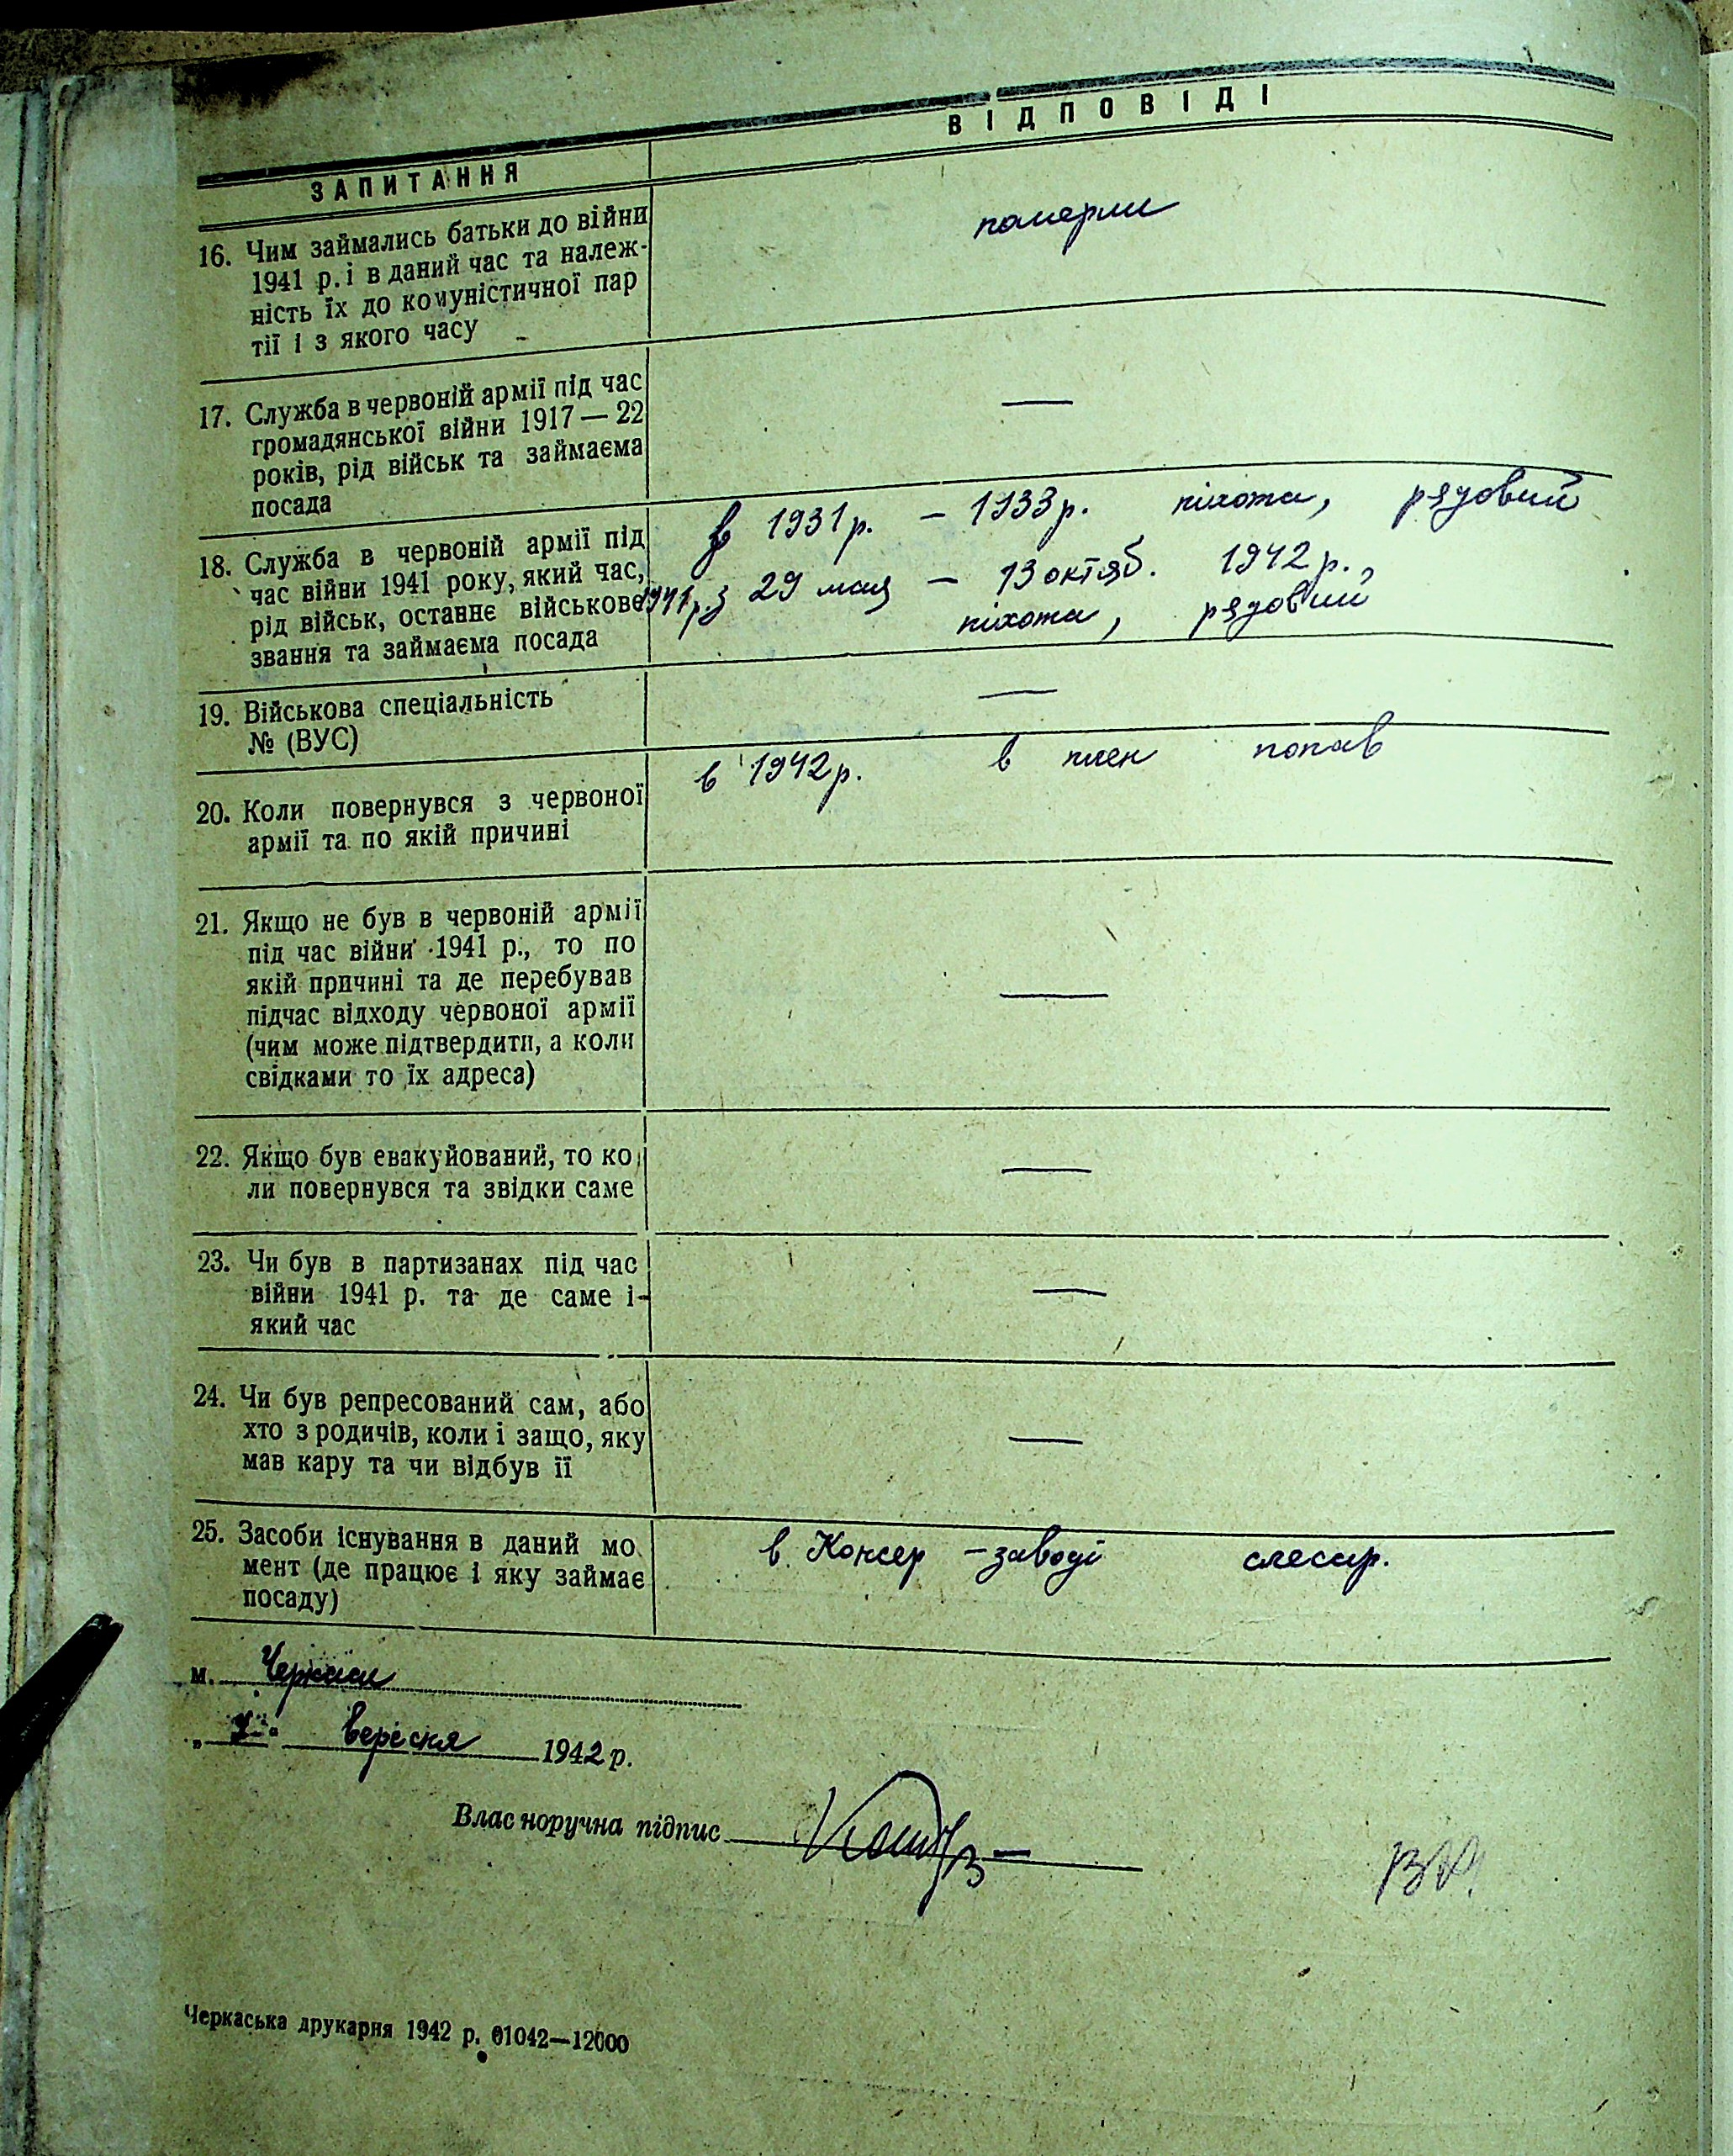 ВІДПОВІДІ
ЗАПИТАННЯ
16. Чим займались батьки до війни
1941 р. і в даний час та належ-
ність їх до комуністичної пар
тії і з якого часу
померли
17. Служба в червоній армії під час
громадянської війни 1917 — 22
років, рід військ та займаєма
посада
—
18. Служба в червоній армії під
час війни 1941 року, який час,
рід військ, останнє військове
звання та займаєма посада
в 1931 р. – 1933 р. піхота, рядовий
1941 р. з 29 мая – 13 октяб. 1942 р.,
піхота, рядовий
19. Військова спеціальність
№ (ВУС)
—
20. Коли повернувся з червоної
армії та по якій причині
в 1942 р. в плен попав
21. Якщо не був в червоній армії
під час війни 1941 р., то по
якій причині та де перебував
підчас відходу червоної армії
(чим може підтвердити, а коли
свідками то їх адреса)
—
22. Якщо був евакуйований, то ко
ли повернувся та звідки саме
—
23. Чи був в партизанах під час
війни 1941 р. та де саме і-
який час
—
24. Чи був репресований сам, або
хто з родичів, коли і защо, яку
мав кару та чи відбув її
—
25. Засоби існування в даний мо
мент (де працює і яку займає
посаду)
в. Консер – заводі слесар.
м. Черкаси
вересня 1942 р.
Влас норучна підпис
Черкаська друкарня 1942 р. 01042—12000